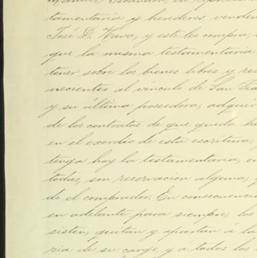 tamentaria y herederos, venden
José D. Navo, y este les compra,
que la misma testamentaria
tener sobre los bienes libres y res
necientes al vínculo de San
y su última poseedora, adqui
de los contratos de que queda h
en el exordio de esta escritura,
tenga hoy la testamentaria, o
todas, sin reservacion alguna,
del comprador. En consecuenci
en adelante para siempre, los
sisten, quitan y apartan a la
ria de su cargo, y a todos los